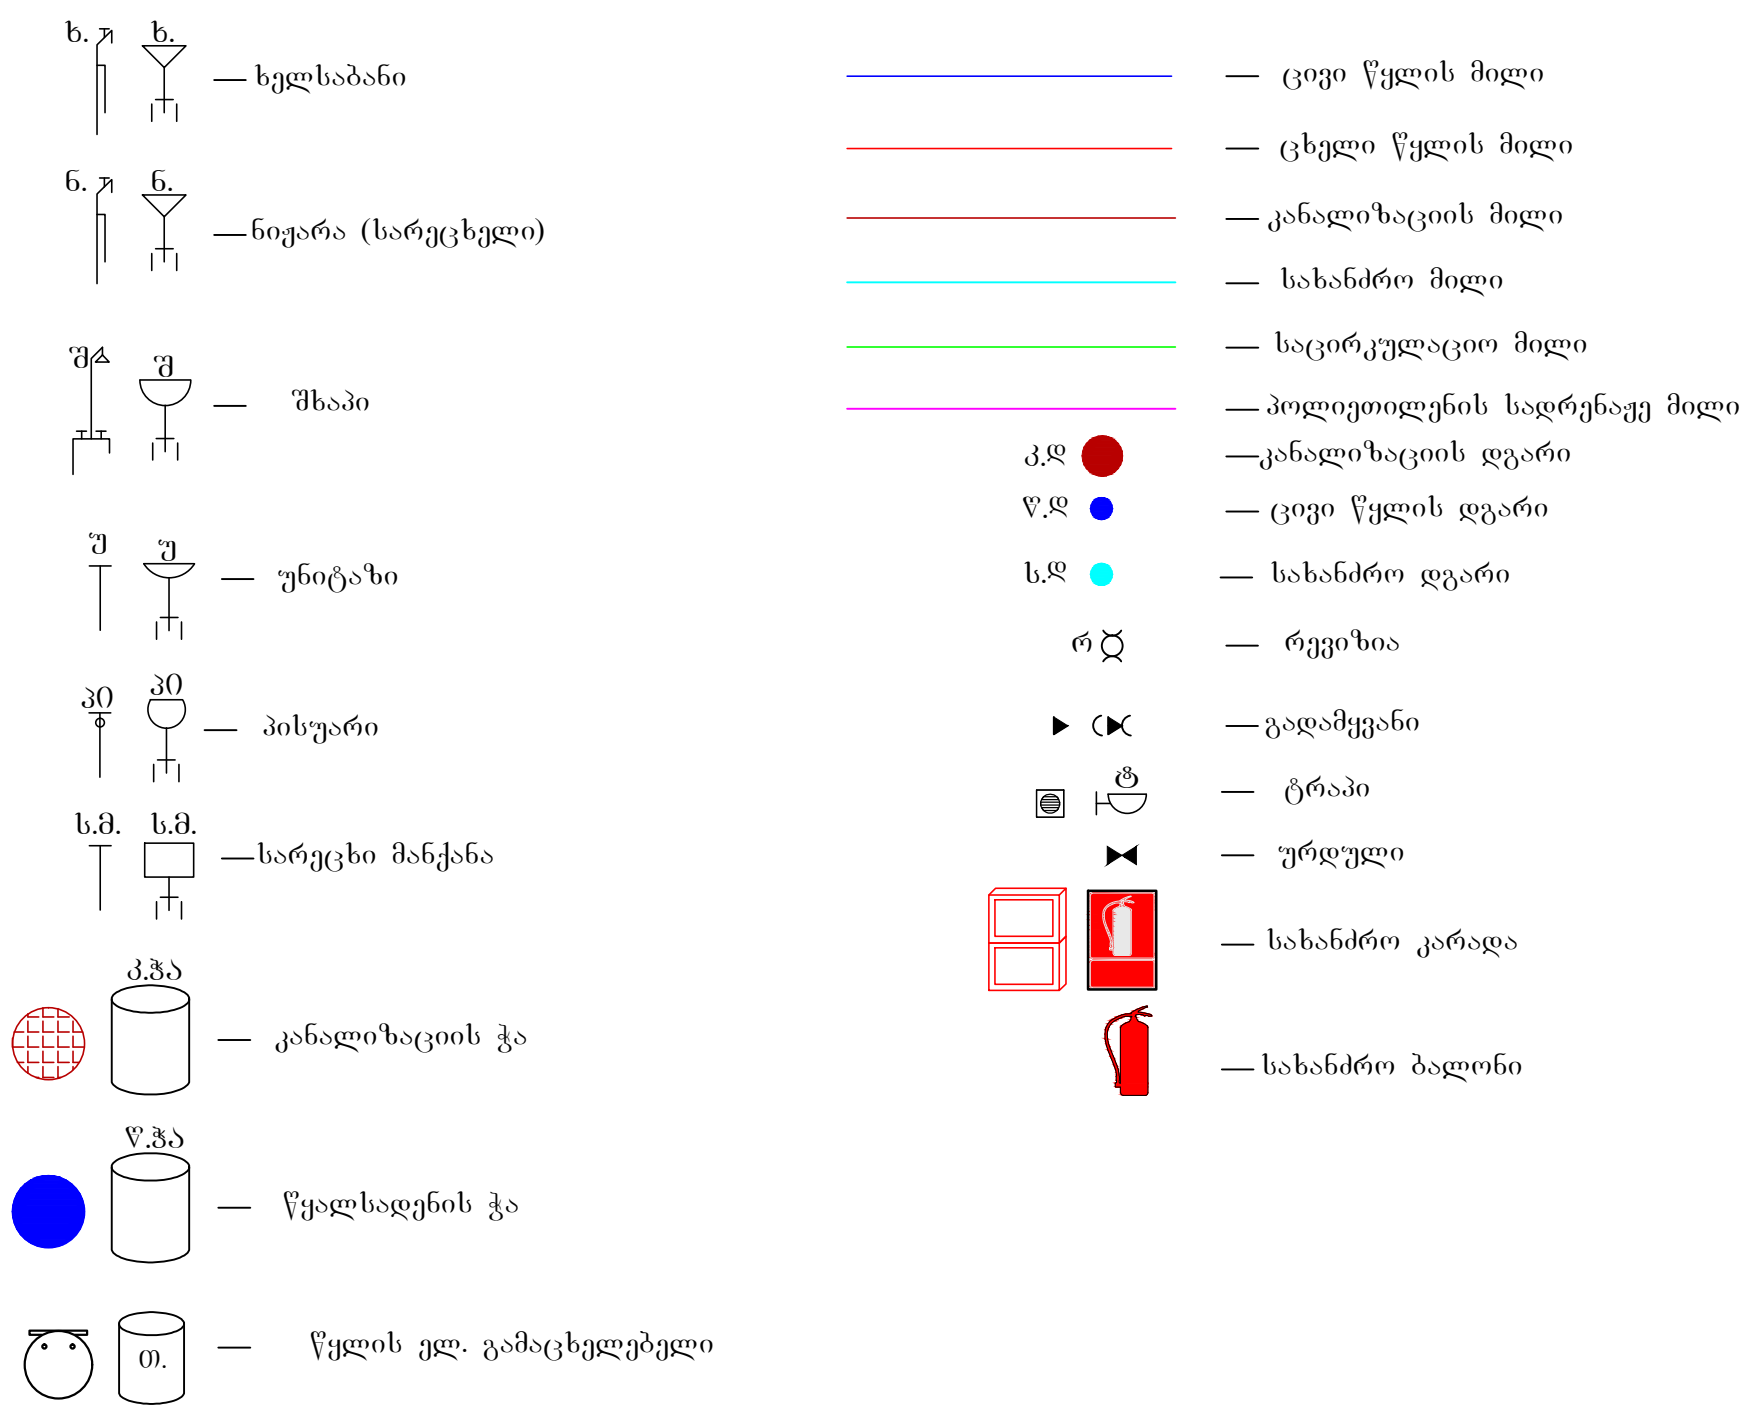 ხ. ხ.
— ხელსაბანი
ნ. ნ.
— ნიჟარა (სარეცხელი)
შ შ
— შხაპი
უ უ
— უნიტაზი
პი პი
— პისუარი
ს.მ. ს.მ.
— სარეცხი მანქანა
კ.ჭა
— კანალიზაციის ჭა
წ.ჭა
— წყალსადენის ჭა
თ.
— წყლის ელ. გამაცხელებელი
— ცივი წყლის მილი
— ცხელი წყლის მილი
— კანალიზაციის მილი
— სახანძრო მილი
— საცირკულაციო მილი
— პოლიეთილენის სადრენაჟე მილი
კ.დ — კანალიზაციის დგარი
წ.დ — ცივი წყლის დგარი
ს.დ — სახანძრო დგარი
რ — რევიზია
— გადამყვანი
ტ
— ტრაპი
— ურდული
— სახანძრო კარადა
— სახანძრო ბალონი